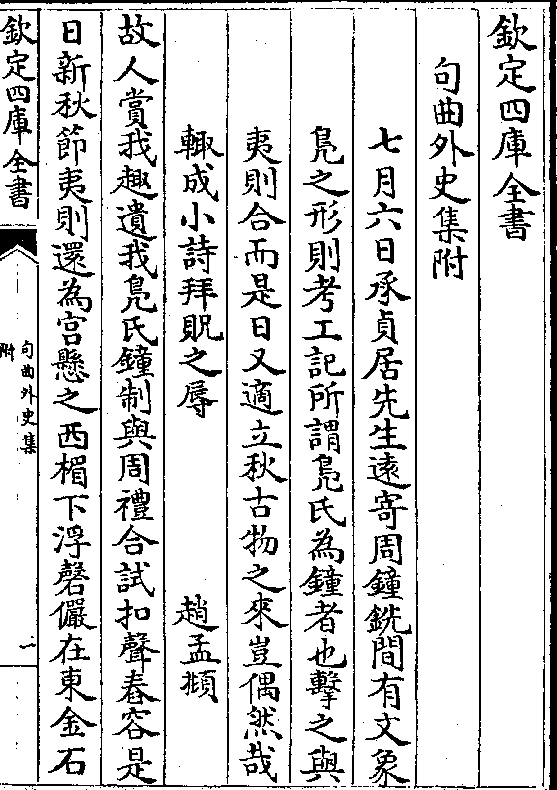 欽定四庫全書
句曲外史集附
七月六日承貞居先生遠寄周鐘銑間有文象
鳧之形則考工記所謂鳧氏為鐘者也擊之與
夷則合而是日又適立秋古物之來豈偶然哉
輙成小詩拜貺之辱
趙孟頫
故人賞我趣遺我鳧氏鐘制與周禮合試扣聲舂容是
日新秋節夷則還為宫懸之西楣下浮磬儼在東金石
欽定四庫全書
句曲外史集
附
一